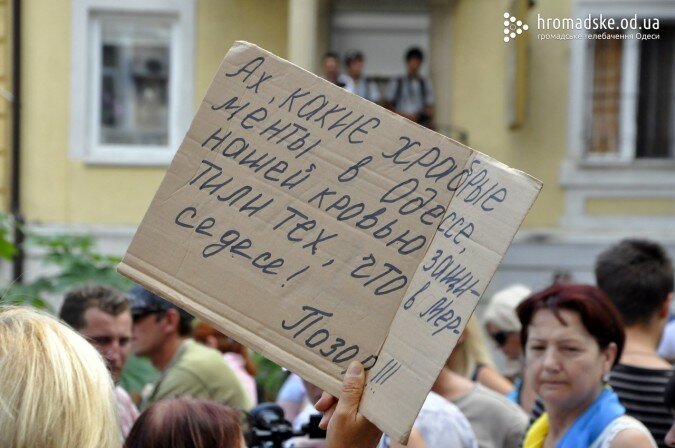 hromadske.od.ua
громадське телебачення Одеси
Ах, какие храбрые
менты в Одессе,
нашей кровью защи-
тили тех, что в мер-
седесе!
Позор!!!